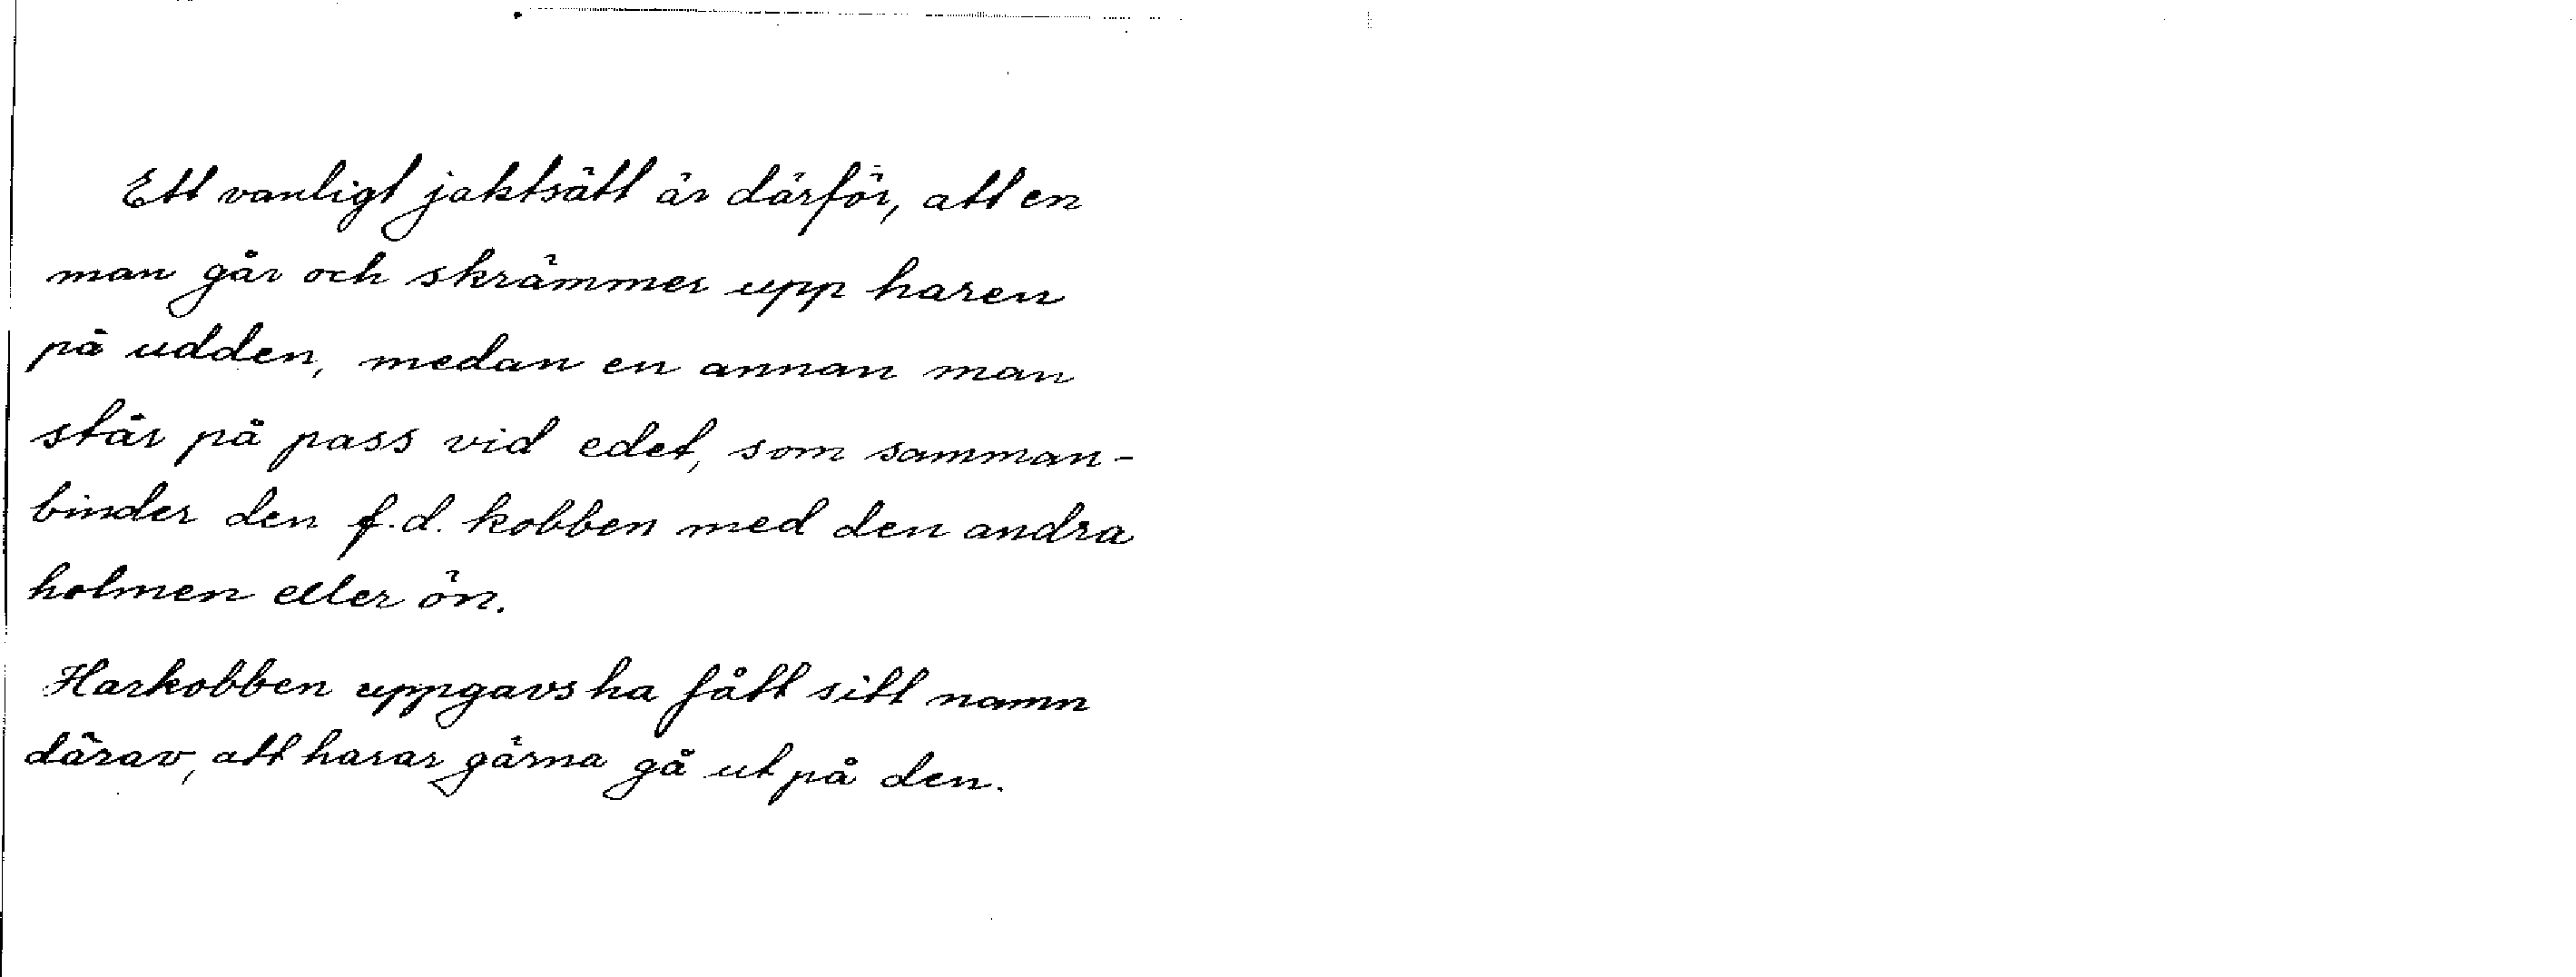 Ett vanligt jaktsätt är därför, att en
man går och skrämmer upp haren
på udden, medan en annan man
står på pass vid edet, som samman-
binder den f.d. kobben med den andra
holmen eller ön.
Harkobben uppgavs ha fått sitt namn
därav, att harar gärna gå ut på den.